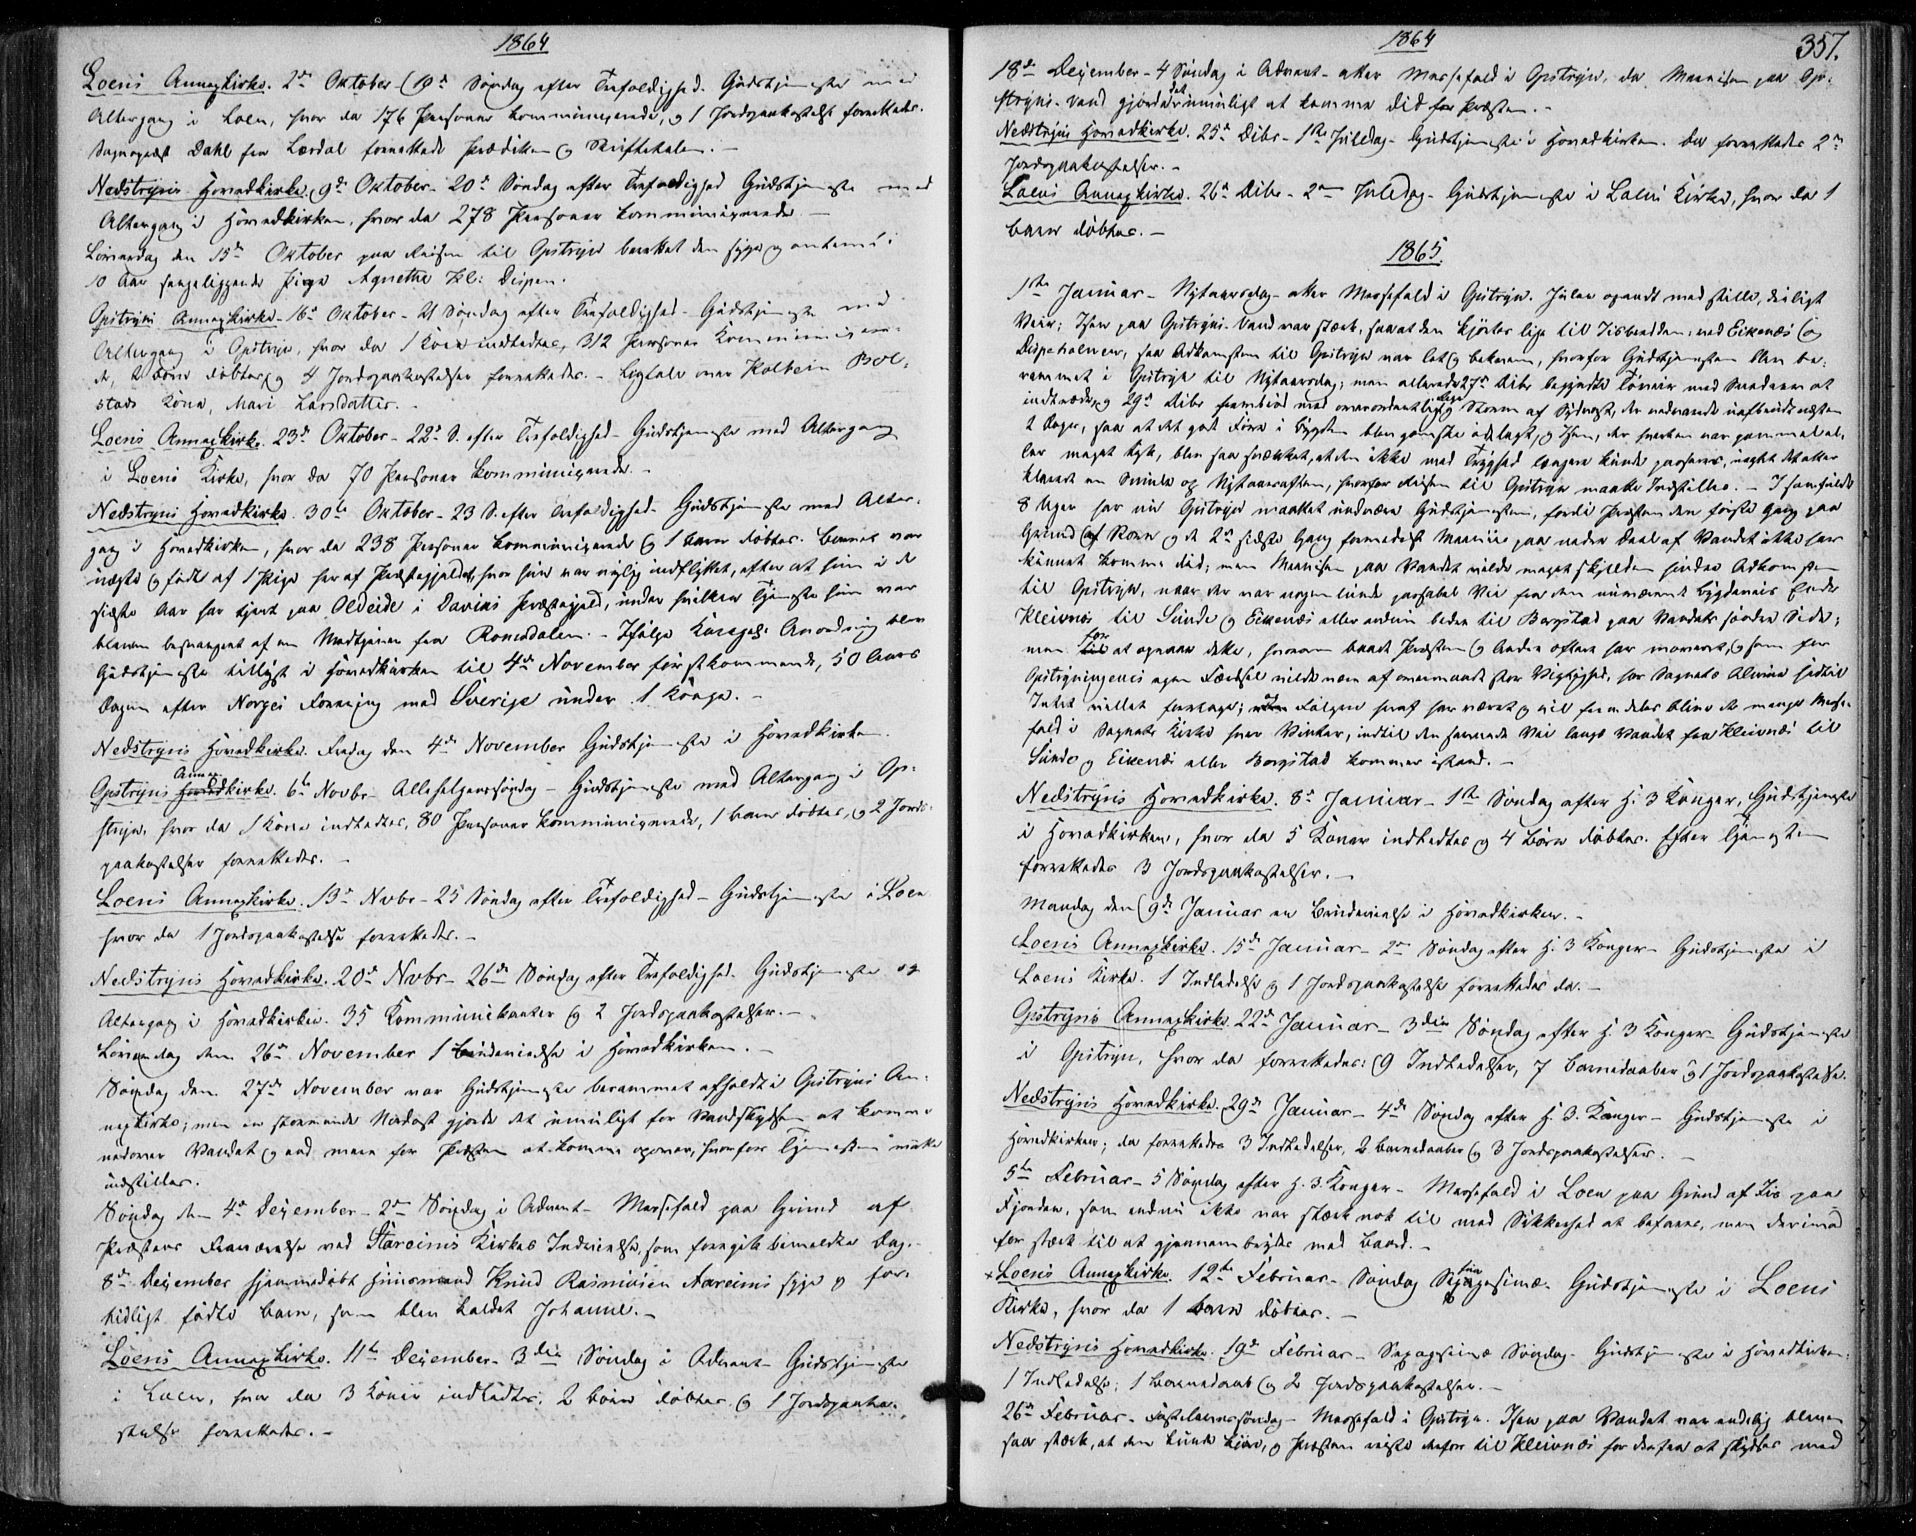 1864
Loens Annexkirke. 2den Oktober (19de Søndag efter Trefoldighed. Gudstjeneste med
Altergang i Loen, hvor da 176 Personer kommunicerede, og 1 Jordspaakastelse forrettedes.
Sogneprest Dahl fra Lærdal forrettede Prædiken og Skriftetalen. –
Nedstryns Hovedkirke. 9de Oktober – 20de Søndag efter Trefoldighed Gudstjeneste med
Altergang i Hovedkirken, hvor da 278 Personer kommunicerede. –
Løverdag den 15de Oktober paa Reisen til Opstryn berettet den syge og omtrent i
10 Aar sengeliggende Pige Agnethe Kl: Dispen.
Opstryns Annexkirke – 16de Oktober – 21 Søndag efter Trefoldighed – Gudstjeneste med
Altergang i Opstryn, hvor da 1 Kone indledtes, 312 Personer Kommunicere-
de, 2 Børn døbtes og 4 Jordspaakastelser forrettedes. – Ligtale over Kolbein Bol-
stads Kone, Mari Larsdatter. –
Loens Annexkirke. 23de Oktober – 22de S. efter Trefoldighed – Gudstjeneste med Altergang
i Loens Kirke, hvor da 70 Personer kommunicerede. –
Nedstryns Hovedkirke. 30te Oktober – 23 S. efter Trefoldighed – Gudstjeneste med Alter-
gang i Hovedkirken, hvor da 238 Personer kommunicerede og 1 Barn døbtes. Barnet var
uægte og født af 1 Pige her af Præstegjeldet, hvor hun var nylig indflyttet, efter at hun i de
sidste Aar har tjent paa Oldeide i Davigs Præstegjeld, under hvilken Tjeneste hun var
bleven besvangret af en Medtjener fra Romsdalen. – Ifølge Anordning blev
Gudstjeneste tillyst i Hovedkirken til 4de November førstkommende, 50 Aars
Dagen efter Norges Forening med Sverige under 1 Konge. –
Nedstryns Hovedkirke. Fredag den 4de November Gudstjeneste i Hovedkirken.
Annex-
Opstryns Hovedkirke. 6te Novbr – Allehelgenssøndag – Gudstjeneste med Altergang i Op-
stryn, hvor da 1 Kone indledtes, 80 Personer kommunicerede, 1 Barn døbtes, og 2 Jords-
paakastelser forrettedes. –
Loens Annexkirke. 13de Novbr – 25 Søndag efter Trefoldighed – Gudstjeneste i Loen
hvor da 1 Jordspaakastelse forrettedes. –
Nedstryns Hovedkirke. 20de Novbr – 26de Søndag efter Trefoldighed. Gudstjeneste og
Altergang i Hovedkirken. 35 Kommunikanter og 2 Jordspaakastelser. –
Løverdag den 26de November 1 Brudevielse i Hovedkirken. –
Søndag den 27de November var Gudstjeneste berammet afholdt i Opstryns An-
nexkirke; men en stormende Nordost gjorde det umuligt for Vandskydsen at komme
nedover Vandet og end mere for Præsten at komme opover, hvorfor Tjenesten maatte
indstilles.
Søndag den 4de Dezember – 2den Søndag i Advent – Messefald paa Grund af
Præstens Fraværelse ved Stareims Kirkes Indvielse, som foregik bemeldte Dag. –
8de Dezember hjemmedøbt Huusmand Knud Rasmusen Aareims syge og for-
tidligt fødte Barn, som blev kaldet Johanne. –
Loens Annexkirke. 11te Dezember – 3die Søndag i Advent – Gudstjeneste
i Loen, hvor da 3 Koner indledtes, 2 Børn døbtes og 1 Jordspaaka-
stelse forrettedes. –
1864
357.
18de Dezember – 4 Søndag i Advent – atter Messefald i Opstryn, da Meenisen paa Op-
det
stryns-Vand gjorde umuligt at komme did for Præsten. –
Nedstryns Hovedkirke. 25de Dcbr – 1ste Juledag – Gudstjeneste i Hovedkirken. Der forrettedes 2de
Jordspaakastelser. –
Loens Annexkirke. 26de Dcbr – 2den Juledag – Gudstjeneste i Loens Kirke, hvor da 1
Barn døbtes. –
1865.
1ste Januar – Nytaarsdag – atter Messefald i Opstryn. Julen oprandt med stille, deiligt
Veir; Isen paa Opstryns-Vand var stærk, saa at den kjørtes lige til Iisbredden, ved Eikenæs og
Dispeholmen, saa Adkomsten til Opstryn var let og bekvem, hvorfor Gudstjenesten blev be-
rammet i Opstryn til Nytaarsdag; men allerede 27de Dcbr begyndte Tøveir med Søndenvind at
indtræde, og 29de Dcbr frembrød med overordentlig Storm af Sydvest, der vedvarede uafbrudt næsten
2 Dage, saa at det gode Føre i Bygden blev ganske ødelagt, og Isen, der hverken var gammel el-
ler meget tyk, blev saa svækket, at den ikke med Tryghed længere kunde passeres, uagtet det atter
klarede en Smule op Nytaarsaften, hvorfor Reisen til Opstryn maatte Indstilles. – I samfulde
8 Uger har nu Opstryn maattet undvære Gudstjenesten, fordi Præsten den første Gang paa
Grund af Storm og de 2de sidste Gang formedelst Meenis paa nedre Deel af Vandet ikke har
kunnet komme did; men Meenisen paa Vandet vilde meget sjelden hindre Adkomsten
til Opstryn, naar der var nogenlunde passabel Vei fra den nuværende Bygdeveis Ende
Kleivnes til Sunde og Eikenæs eller endnu bedre til Bergstad paa Vandets søndre Side;
for
men til at opnaae dette, hvorom baade Præsten og Andre oftere har moveret, og som for
Opstryningenes egen Færdsel vilde være af overmaade stor Vigtighed, har Sognets Almue hidtil
Intet villet foretage; Følgen heraf har været og vil fremdeles blive de mange Messe-
fald i Sognets Kirke hver Vinter, indtil den savnede Vei langs Vandet fra Kleivnæs til
Sunde og Eikenæs eller Bergstad kommer istand. –
Nedstryns Hovedkirke. 8de Januar – 1ste Søndag efter H. 3 Konger, Gudstjeneste
i Hovedkirken, hvor da 5 Koner indledtes og 4 Børn døbtes. Efter Tjenesten
forrettedes 3 Jordspaakastelser. –
Mandag den 9de Januar en Brudevielse i Hovedkirken. –
Loens Annexkirke. 15de Januar – 2den Søndag efter H. 3 Konger – Gudstjeneste i
Loens Kirke. 1 Indledelse og 1 Jordspaakastelse forrettedes da. –
Opstryns Annexkirke. 22de Januar – 3die Søndag efter H. 3 Konger – Gudstjeneste
i Opstryn, hvor da forrettedes: 9 Indledelser, 7 Barnedaaber og 1 Jordspaakastelse.
Nedstryns Hovedkirke. 29de Januar – 4de Søndag efter H. 3. Konger – Gudstjeneste i
Hovedkirken; da forrettedes 3 Indledelser, 2 Barnedaaber og 3 Jordspaakastelser. –
5te Februar – 5 Søndag efter H. 3. Konger – Messefald i Loen paa Grund af Iis paa
Fjorden, som endnu ikke var stærk nok til med Sikkerhed at befares, men derimod
for stærk til at gjennembryde med Baad. –
Loens Annexkirke. 12te Februar – Søndag Septuagesimæ. Gudstjeneste i Loens
Kirke, hvor da 1 Barn døbtes. –
Nedstryns Hovedkirke. 19de Februar – Sexagesimæ Søndag – Gudstjeneste i Hovedkirken.
1 Indledelse, 1 Barnedaab og 2 Jordspaakastelser. –
26de Februar – Fastelavnssøndag – Messefald i Opstryn. Isen paa Vandet var endelig bleven
saa stærk, at den kunde kjøres, og Præsten reiste derfor til Kleivnæs for derfra at skydses med